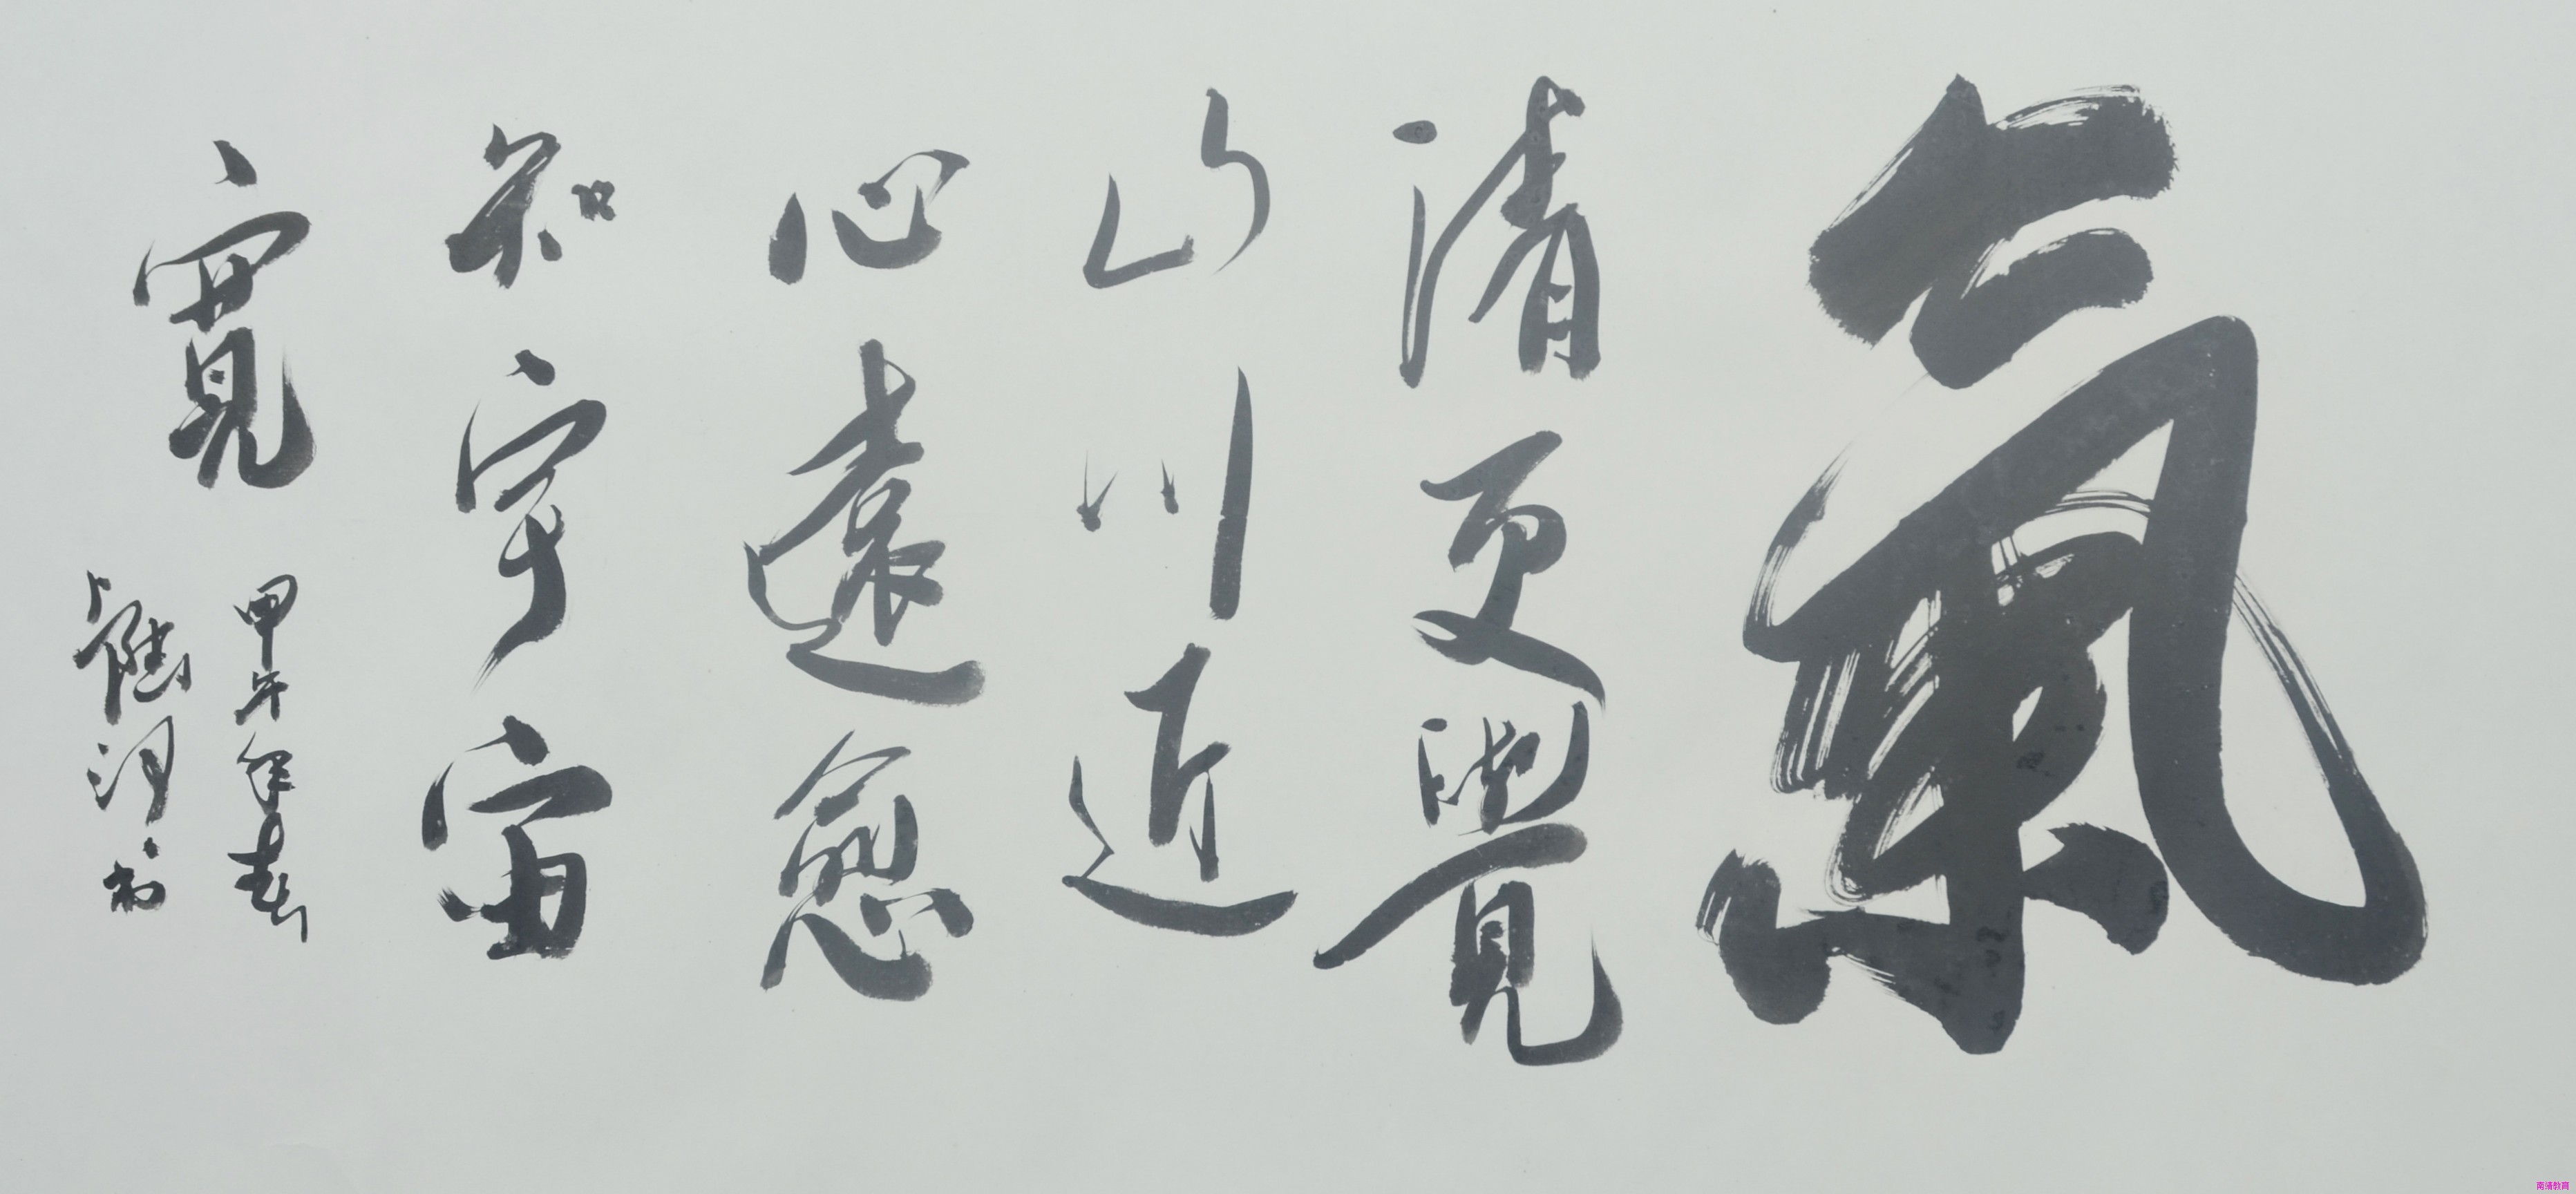 氣
清更覺
山川近
心遠愈
知宇宙
寬
甲午年春
南靖教育